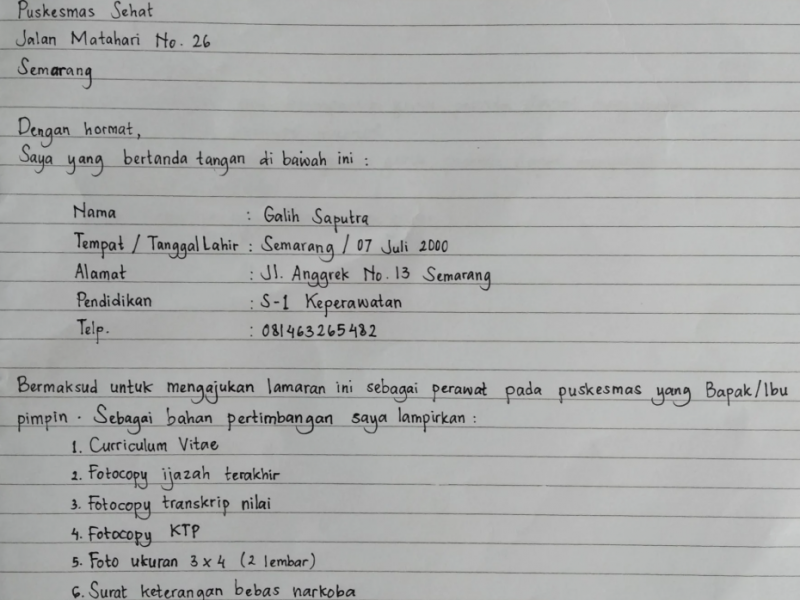 Puskesmas Sehat
Jalan Matahari No. 26
Semarang
Dengan hormat,
Saya yang bertanda tangan di bawah ini :
Nama : Galih Saputra
Tempat / Tanggal Lahir : Semarang / 07 Juli 2000
Alamat : Jl. Anggrek No. 13 Semarang
Pendidikan : S-1 Keperawatan
Telp. : 081463265482
Bermaksud untuk mengajukan lamaran ini sebagai perawat pada puskesmas yang Bapak/Ibu
pimpin. Sebagai bahan pertimbangan saya lampirkan :
1. Curriculum Vitae
2. Fotocopy ijazah terakhir
3. Fotocopy transkrip nilai
4. Fotocopy KTP
5. Foto ukuran 3 x 4 (2 lembar)
6. Surat keterangan bebas narkoba